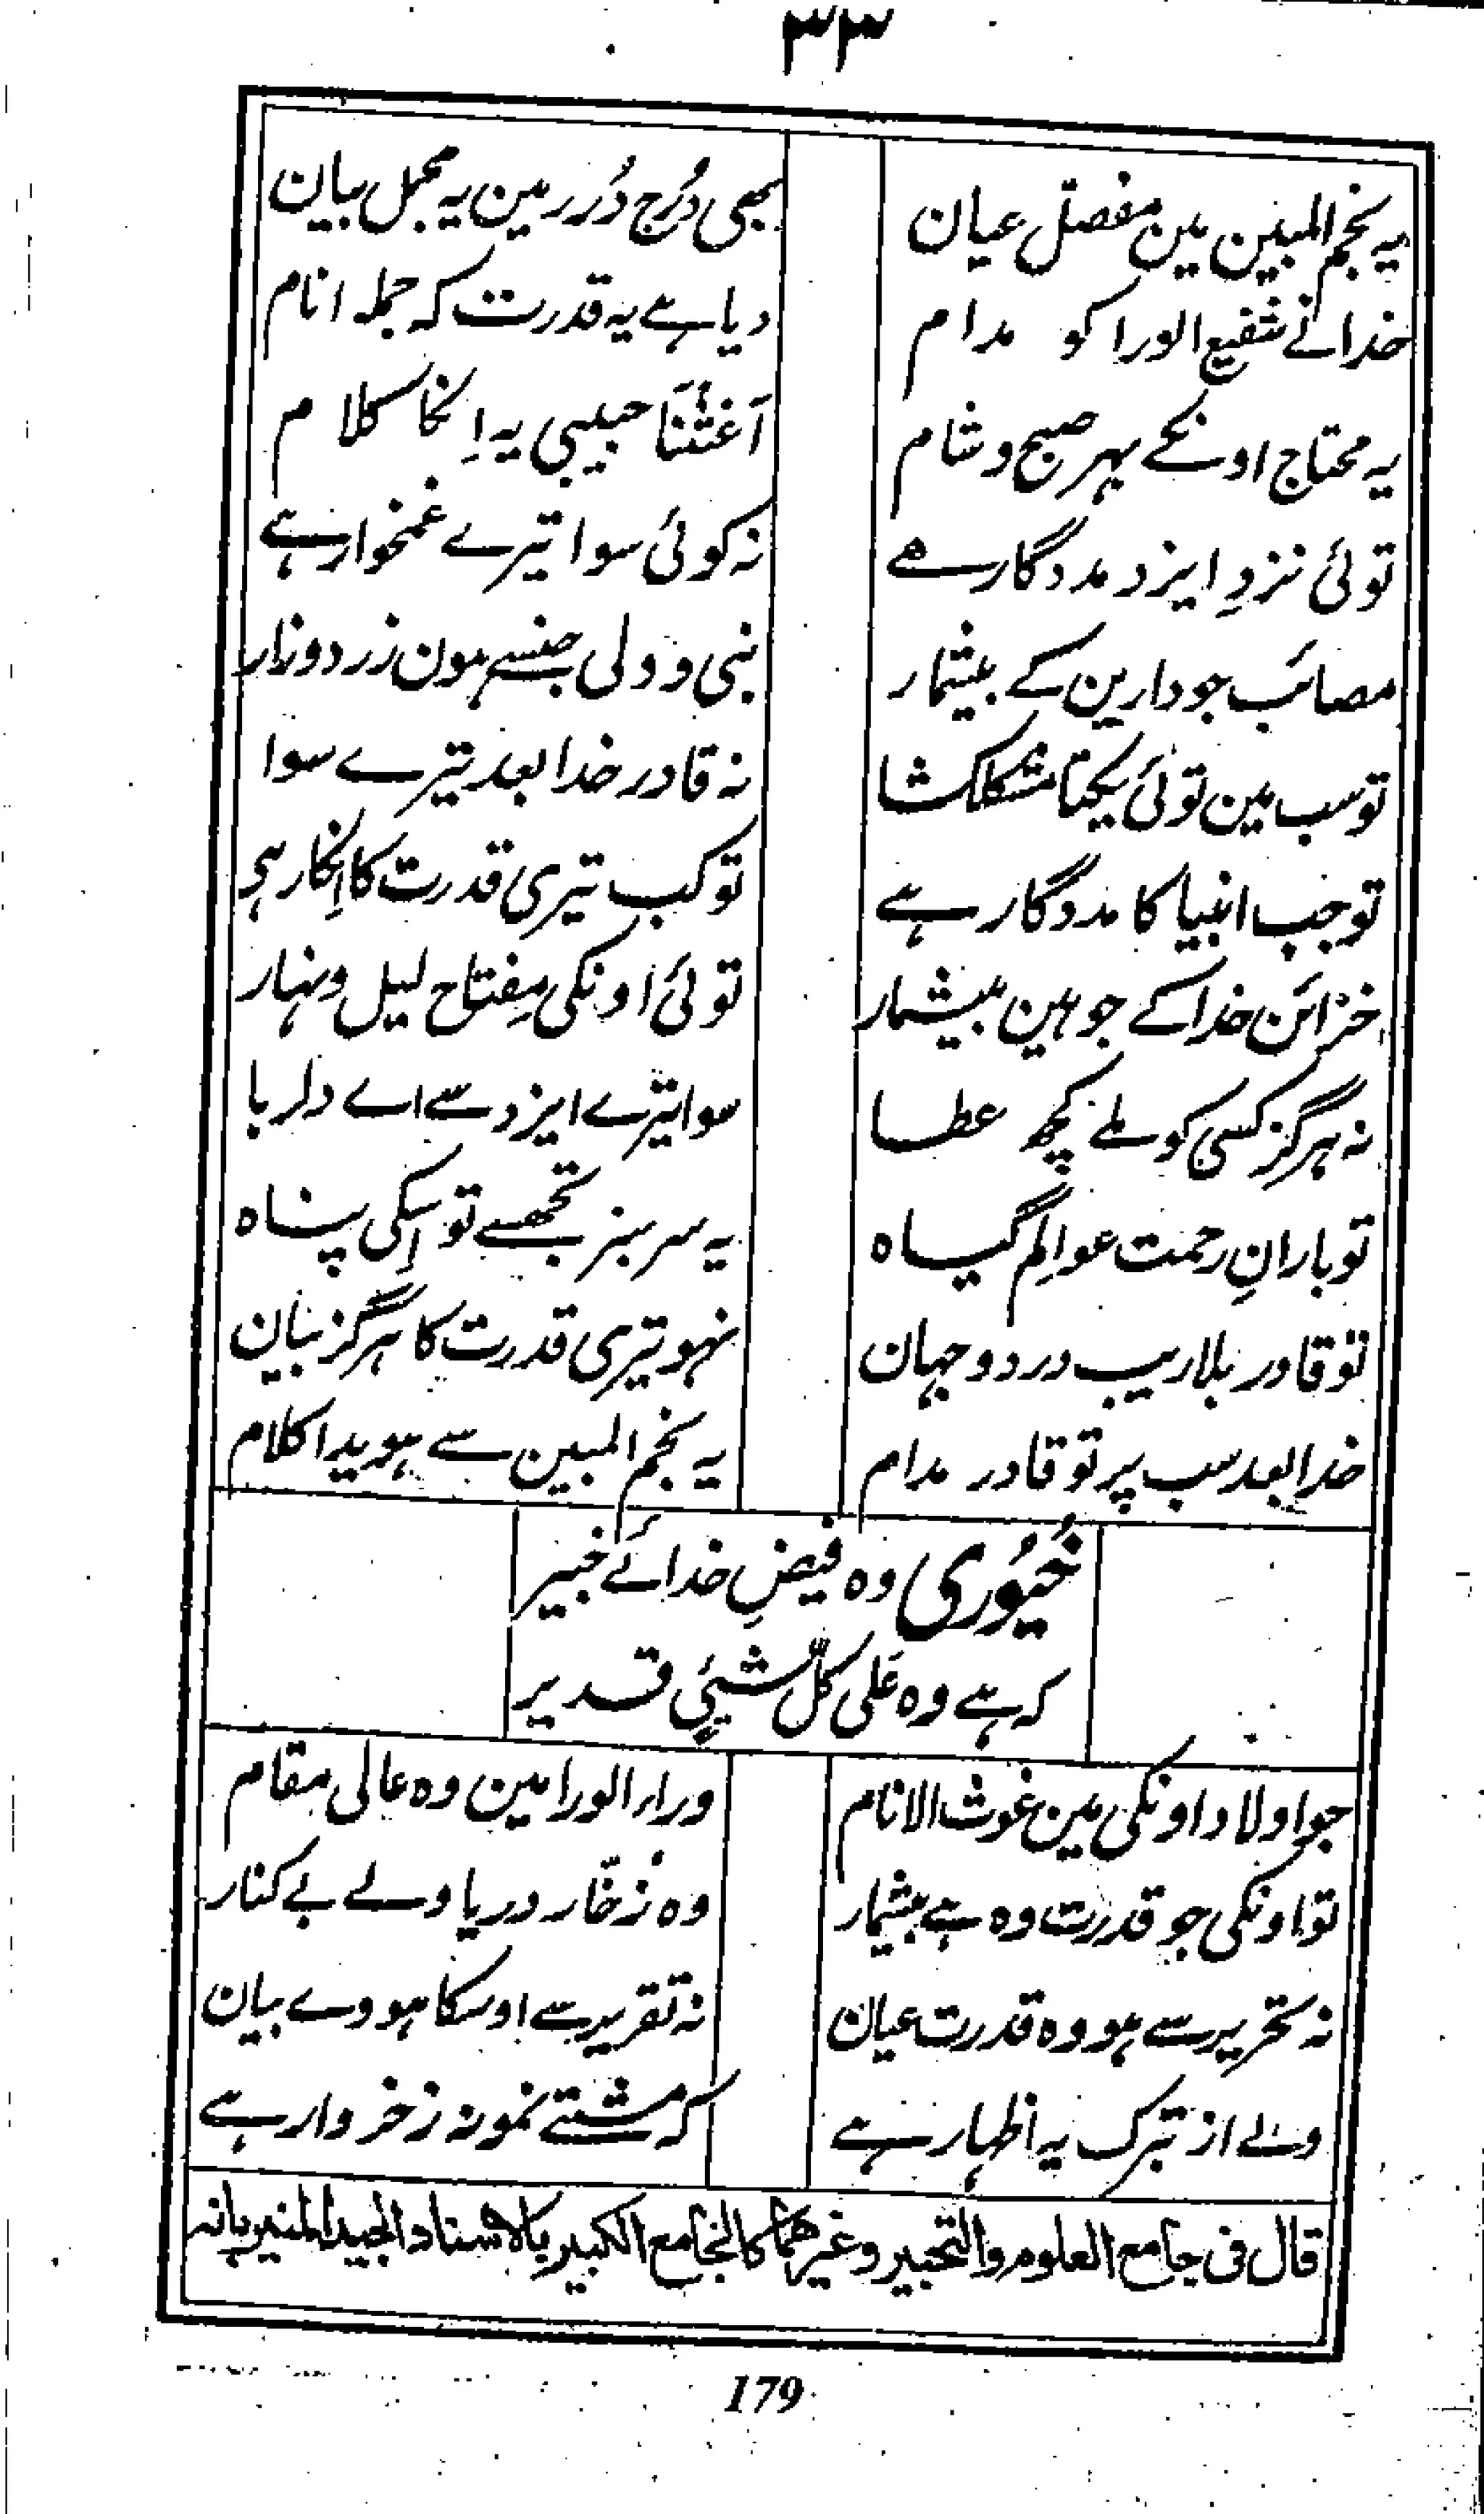 ٣٣
یہ نجم المبین مین مفصّل عیان
بھی دُرج دُرر مین یہ مجمل بیان
خدا نے شفیع الورا کو مدام
دیا ہے یہ قدرت کہ جملہ انام
یہ محتاج اونکے بہر صبح و شام
آغثنَا حبیبی یہ اِنکا کلام
توئی نزدِ ایزد مددگار ہے
نہ کوئی سوا تیرے غمخوار ہے
مصائب جو دارین کے بیشمار
نبی و ولی جنسے ہون زرد و زار
تو سب مین توئی یکتا مشکلکشا
نہ قادر خدا بعد تیرے سوا
تو جب انبیا کا مددگار ہے
تو کب تیری قدرت کا اِنکار ہی
خزائن خدا کے جو ہین بیشمار
توئی اونکی مِفتاح لیل و نہار
نہ ہرگز کسی کو ملے کچھ عطا
سوا تیرے ایزد سے اے دلربا
تو بارانِ رحمت عوالِم گیاہ
یہ سرسبز تجھسے تو اِسکی پناہ
تو قادر بلاریب در دو جہان
نہو تیری قدرت کا ہرگز بیان
خدا بعد سب پر تو قادر مدام
یہ نجم المبین سے ہویدا کلام
خُیوُری وہ فیضِ خدائے خبیر
کہ ہے وہ عَلی کلّ شیئٍ قدیر
جو اولاد اونکی مین غوث الانام
وراء الورا مین وہ عالی مقام
تو اونکی جو قدرت وہ ہے بیشمار
وہ زخّار دریا ولے بے کنار
نہ تحریر سے ہو وہ قدرت عیان
نہ تقریر سے اوسکا ہووے بیان
ولے از تبرک یہ اظہار ہے
کہ مشتے نمونہ ز خروار ہے
قال فی جامع العلوم والتحبیر وغیرهما کالجامع الکبیر بالاسناد الجید المنیر بانہ
179